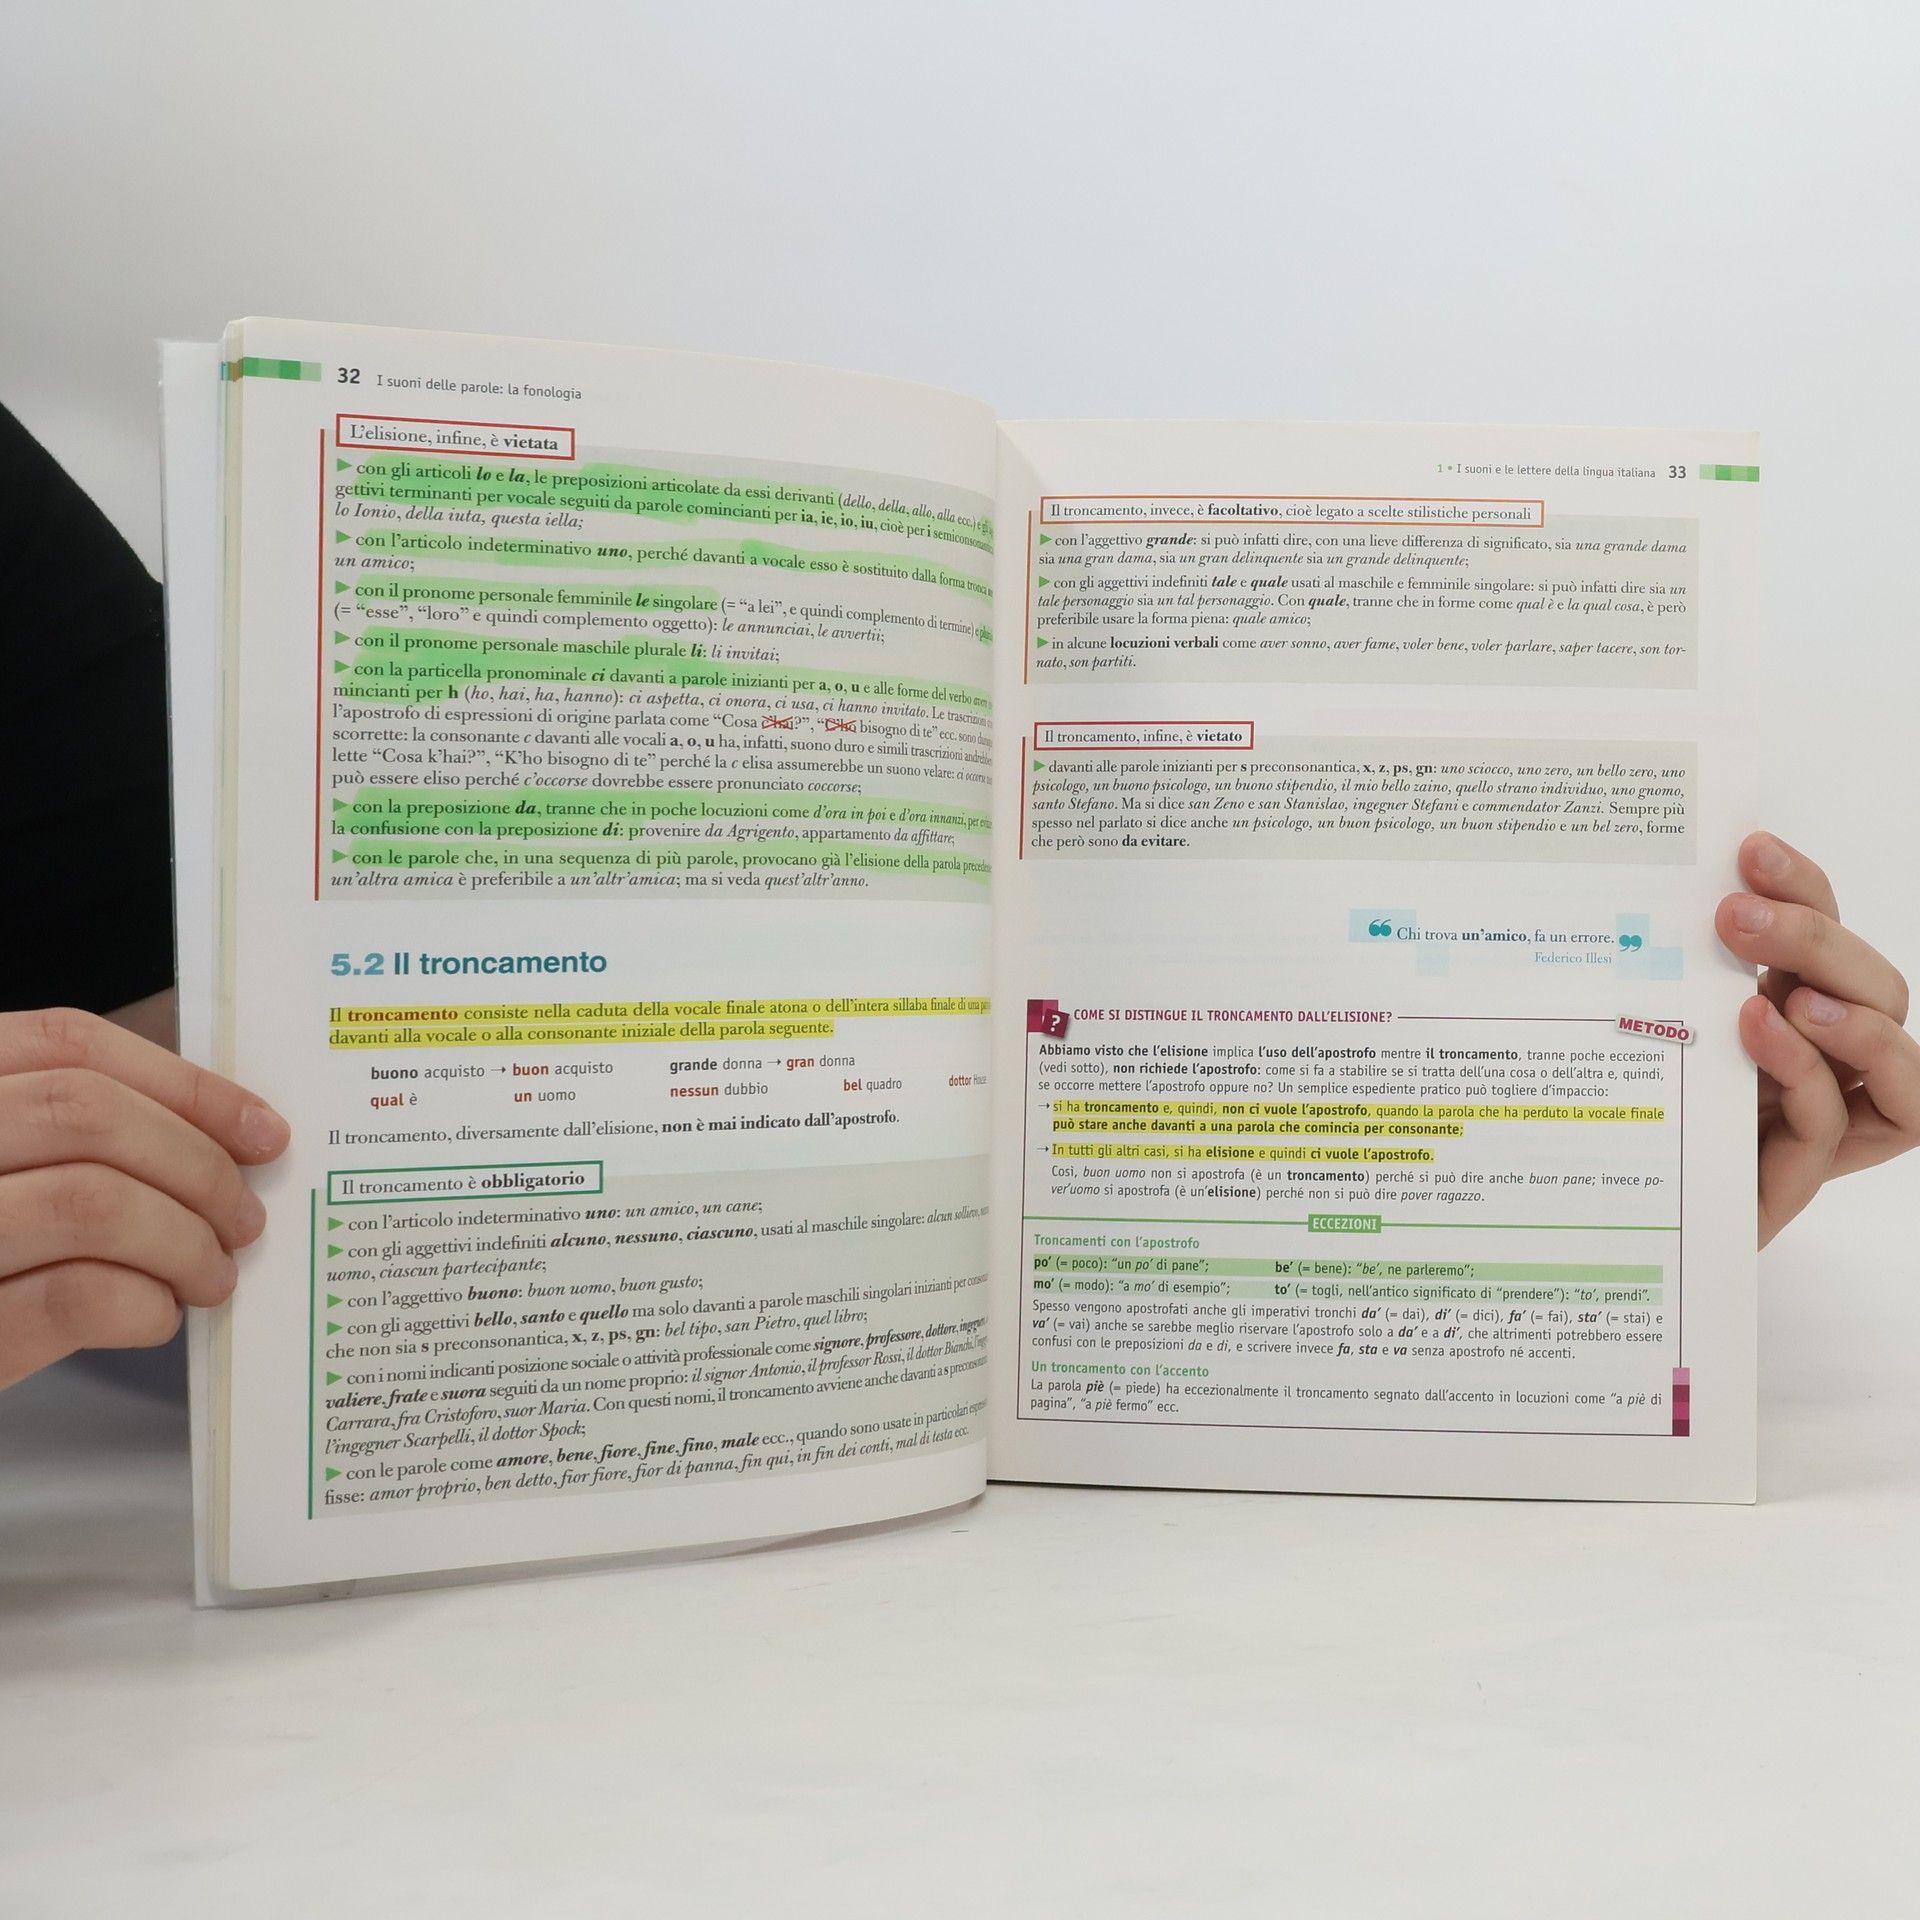 32 I suoni delle parole: la fonologia
L'elisione, infine, è vietata
con gli articoli lo e la, le preposizioni articolate da essi derivanti (dello, della, allo, alla ecc.) e gli
gettivi terminanti per vocale seguiti da parole comincianti per ia, ie, io, iu, cioè per i
lo Ionio, della iuta, questa iella;
con l'articolo indeterminativo uno, perché davanti a vocale esso è sostituito dalla forma tronca
un amico;
con il pronome personale femminile le singolare (= “a lei”, e quindi complemento di termine) e
(= “esse”, “loro” e quindi complemento oggetto): le annunciai, le avvertii;
con il pronome personale maschile plurale li: li invitai;
con la particella pronominale ci davanti a parole inizianti per a, o, u e alle forme del verbo
mincianti per h (ho, hai, ha, hanno): ci aspetta, ci onora, ci usa, ci hanno invitato. Le trascrizioni
l'apostrofo di espressioni di origine parlata come “Cosa c'hai?”, “C'ho bisogno di te” ecc. sono
scorrette: la consonante c davanti alle vocali a, o, u ha, infatti, suono duro e simili trascrizioni
lette “Cosa k'hai?”, “K'ho bisogno di te” perché la c elisa assumerebbe un suono velare: ci occorse
può essere eliso perché c'occorse dovrebbe essere pronunciato coccorse;
con la preposizione da, tranne che in poche locuzioni come d'ora in poi e d'ora innanzi, per
la confusione con la preposizione di: provenire da Agrigento, appartamento da affittare;
con le parole che, in una sequenza di più parole, provocano già l'elisione della parola
un'altra amica è preferibile a un'altr'amica; ma si veda quest'altr'anno.
5.2 Il troncamento
Il troncamento consiste nella caduta della vocale finale atona o dell'intera sillaba finale di una
davanti alla vocale o alla consonante iniziale della parola seguente.
buono acquisto → buon acquisto grande donna → gran donna
qual è un uomo nessun dubbio bel quadro dottor House
Il troncamento, diversamente dall'elisione, non è mai indicato dall'apostrofo.
Il troncamento è obbligatorio
con l'articolo indeterminativo uno: un amico, un cane;
con gli aggettivi indefiniti alcuno, nessuno, ciascuno, usati al maschile singolare: alcun sollievo,
uomo, ciascun partecipante;
con l'aggettivo buono: buon uomo, buon gusto;
con gli aggettivi bello, santo e quello ma solo davanti a parole maschili singolari inizianti per
che non sia s preconsonantica, x, z, ps, gn: bel tipo, san Pietro, quel libro;
con i nomi indicanti posizione sociale o attività professionale come signore, professore, dottore,
valiere, frate e suora seguiti da un nome proprio: il signor Antonio, il professor Rossi, il dottor Bianchi,
Carrara, fra Cristoforo, suor Maria. Con questi nomi, il troncamento avviene anche davanti a s
l'ingegner Scarpelli, il dottor Spock;
con le parole come amore, bene, fiore, fine, fino, male ecc., quando sono usate in particolari
fisse: amor proprio, ben detto, fior fiore, fior di panna, fin qui, in fin dei conti, mal di testa ecc.
1 • I suoni e le lettere della lingua italiana 33
Il troncamento, invece, è facoltativo, cioè legato a scelte stilistiche personali
con l'aggettivo grande: si può infatti dire, con una lieve differenza di significato, sia una grande dama
sia una gran dama, sia un gran delinquente sia un grande delinquente;
con gli aggettivi indefiniti tale e quale usati al maschile e femminile singolare: si può infatti dire sia un
tale personaggio sia un tal personaggio. Con quale, tranne che in forme come qual è e la qual cosa, è però
preferibile usare la forma piena: quale amico;
in alcune locuzioni verbali come aver sonno, aver fame, voler bene, voler parlare, saper tacere, son tor-
nato, son partiti.
Il troncamento, infine, è vietato
davanti alle parole inizianti per s preconsonantica, x, z, ps, gn: uno sciocco, uno zero, un bello zero, uno
psicologo, un buono psicologo, un buono stipendio, il mio bello zaino, quello strano individuo, uno gnomo,
santo Stefano. Ma si dice san Zeno e san Stanislao, ingegner Stefani e commendator Zanzi. Sempre più
spesso nel parlato si dice anche un psicologo, un buon psicologo, un buon stipendio e un bel zero, forme
che però sono da evitare.
“ Chi trova un'amico, fa un errore. ”
Federico Illesi
? COME SI DISTINGUE IL TRONCAMENTO DALL'ELISIONE? METODO
Abbiamo visto che l'elisione implica l'uso dell'apostrofo mentre il troncamento, tranne poche eccezioni
(vedi sotto), non richiede l'apostrofo: come si fa a stabilire se si tratta dell'una cosa o dell'altra e, quindi,
se occorre mettere l'apostrofo oppure no? Un semplice espediente pratico può togliere d'impaccio:
→ si ha troncamento e, quindi, non ci vuole l'apostrofo, quando la parola che ha perduto la vocale finale
può stare anche davanti a una parola che comincia per consonante;
→ In tutti gli altri casi, si ha elisione e quindi ci vuole l'apostrofo.
Così, buon uomo non si apostrofa (è un troncamento) perché si può dire anche buon pane; invece po-
ver'uomo si apostrofa (è un'elisione) perché non si può dire pover ragazzo.
ECCEZIONI
Troncamenti con l'apostrofo
po' (= poco): “un po' di pane”; be' (= bene): “be', ne parleremo”;
mo' (= modo): “a mo' di esempio”; to' (= togli, nell'antico significato di “prendere”): “to', prendi”.
Spesso vengono apostrofati anche gli imperativi tronchi da' (= dai), di' (= dici), fa' (= fai), sta' (= stai) e
va' (= vai) anche se sarebbe meglio riservare l'apostrofo solo a da' e a di', che altrimenti potrebbero essere
confusi con le preposizioni da e di, e scrivere invece fa, sta e va senza apostrofo né accenti.
Un troncamento con l'accento
La parola piè (= piede) ha eccezionalmente il troncamento segnato dall'accento in locuzioni come “a piè di
pagina”, “a piè fermo” ecc.